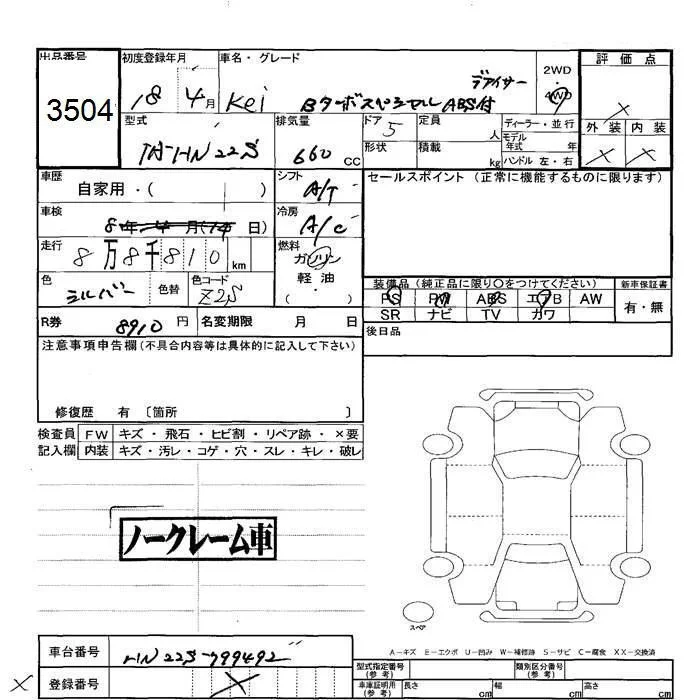 出品番号 3504
初度登録年月 18 4月
車名・グレード Kei Bターボスペシャル ABS付 デアイサー
2WD・4WD
評価点 ×
外装 × 内装 ×
型式 TA-HN22S
排気量 660 cc
ドア 5
定員 人
形状
積載 kg
ディーラー・並行
モデル年式 年
ハンドル 左・右
車歴 自家用・( )
シフト A/T
セールスポイント (正常に機能するものに限ります)
車検 8年 4月(14日)
冷房 A/C
走行 8万8千810 km
燃料 ガソリン
軽・油
・( )
色 シルバー 色替 色コード Z2S
装備品 (純正品に限り〇をつけてください)
新車保証書
PS PW ABS エアB AW
有・無
SR ナビ TV カワ
R券 8910円 名変期限 月 日
後日品
注意事項申告欄(不具合内容等は具体的に記入して下さい)
修復歴 有 〔箇所 〕
検査員 FW キズ・飛石・ヒビ割・リペア跡・×要
記入欄 内装 キズ・汚レ・コゲ・穴・スレ・キレ・破レ
ノークレーム車
スペア
A-キズ E-エクボ U-凹み W-補修跡 S-サビ C-腐食 XX-交換済
車台番号 HN22S-799492
型式指定番号(参考)
類別区分番号(参考)
× 登録番号 ×
車車証明用(参考) 長さ cm 幅 cm 高さ cm